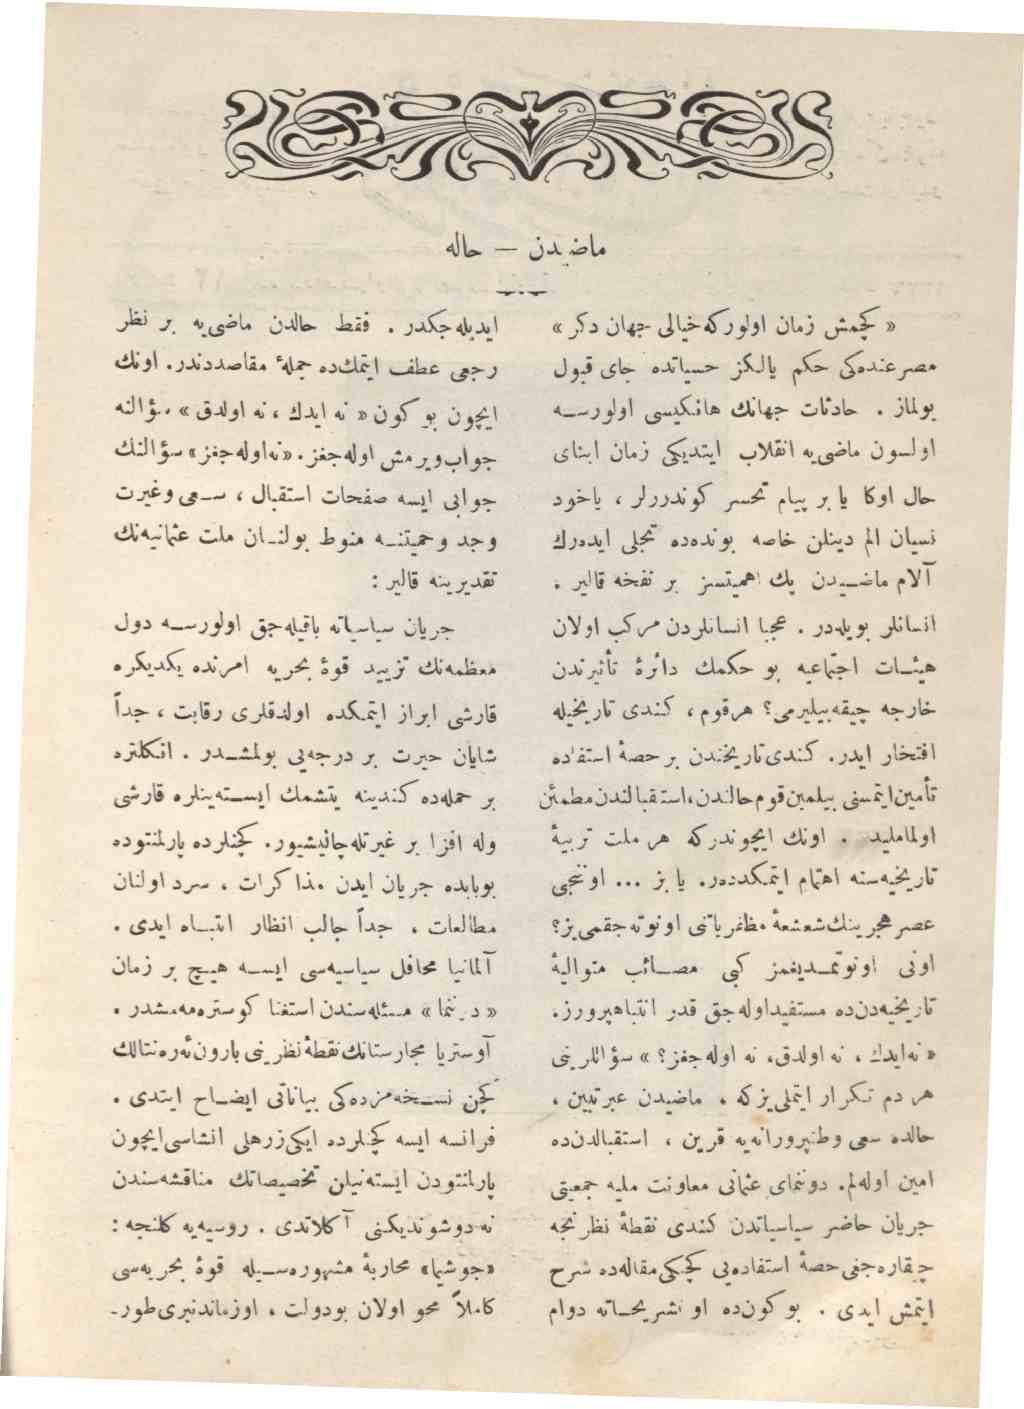 ماضیدن — حاله
« کچمش زمان اولورکه خیالی جهان دکر »
مصرعندەکی حکم یالکز حسیاتده جای قبول
بولماز . حادثات جهانك هانکیسی اولورسه
اولسون ماضی‌یه انقلاب ایتدیکی زمان ابنای
حال اوکا یا بر پیام تحسر کوندررلر ، یاخود
نسیان الم دینلن خاصه بونده‌ده تجلی ایده‌رك
آلام ماضیدن پك اهمیتسز بر نفخه قالیر .
انسانلر بویله‌در . عجبا انسانلردن مرکب اولان
هیئات اجتماعیه بو حکمك دائرهٔ تأثیرندن
خارجه چیقه‌بیلیرمی؟ هرقوم ، کندی تاریخیله
افتخار ایدر. کندی تاریخندن بر حصهٔ استفاده
تأمین ایتمسنی بیلمین قوم حالندن، استقبالندن مطمئن
اولمامليدر . اونك ایچوندرکه هر ملت تربیهٔ
تاریخیه‌سنه اهتمام ایتمکده‌در. یا بز ... اوننجی
عصر هجرینك شعشعهٔ مظفریاتنی اونوته‌جقمی‌یز؟
اونی اونوتمدیغمز کبی مصائب متوالیهٔ
تاریخیه‌دن‌ده مستفید اوله‌جق قدر انتباهپرورز.
« نه ایدك ، نه اولدق، نه اوله‌جغز؟ » سؤاللرینی
هر دم تکرار ایتملی‌یزکه ، ماضیدن عبرتبین ،
حالده سعی وطنپرورانه‌یه قرین ، استقبالدن‌ده
امین اوله‌لم. دوننمای عثمانی معاونت ملیه جمعیتی
جریان حاضر سیاسیاتدن کندی نقطهٔ نظرنجه
چیقاره‌جغی حصهٔ استفاده‌یی کچنکی مقاله‌ده شرح
ایتمش ایدی . بو کون‌ده او تشریحاته دوام
ایدیله‌جکدر . فقط حالدن ماضی‌یه بر نظر
رجعی عطف ایتمك‌ده جملهٔ مقاصددندر. اونك
ایچون بو کون « نه ایدك ، نه اولدق » سؤالنه
جواب ویرمش اوله‌جغز. «نه اوله‌جغز» سؤالنك
جوابی ایسه صفحات استقبال ، سعی وغیرت
وجد وحمیتنه منوط بولنان ملت عثمانیه‌نك
تقدیرینه قالیر :
جریان سیاسیاته باقیله‌جق اولورسه دول
معظمه‌نك تزیید قوهٔ بحریه امرنده یکدیکره
قارشی ابراز ایتمکده اولدقلری رقابت ، جداً
شایان حیرت بر درجه‌یی بولمشدر . انکلتره
بر حمله‌ده کندینه یتشمك ایسته‌ینلره قارشی
وله افزا بر غیرتله چالیشیور. کچنلرده پارلمنتوده
بوبابده جریان ایدن مذاکرات ، سرد اولنان
مطالعات ، جداً جالب انظار انتباه ایدی .
آلمانیا محافل سیاسیه‌سی ایسه هیچ بر زمان
« دوننما » مسئله‌سندن استغنا کوستره‌مه‌مشدر .
آوستریا مجارستانك نقطهٔ نظرینی بارون ئه‌ره‌نتالك
کچن نسخه‌مزده‌کی بیاناتی ایضاح ایتدی .
فرانسه ایسه کچنلرده ایکی زرهلی انشاسی ایچون
پارلمنتودن ایسته‌نیلن تخصیصاتك مناقشه‌سندن
نه دوشوندیکنی آکلاتدی . روسیه‌یه کلنجه :
«چوشیما» محاربهٔ مشهوره‌سیله قوهٔ بحریه‌سی
کاملاً محو اولان بودولت ، اوزماندنبری طور-